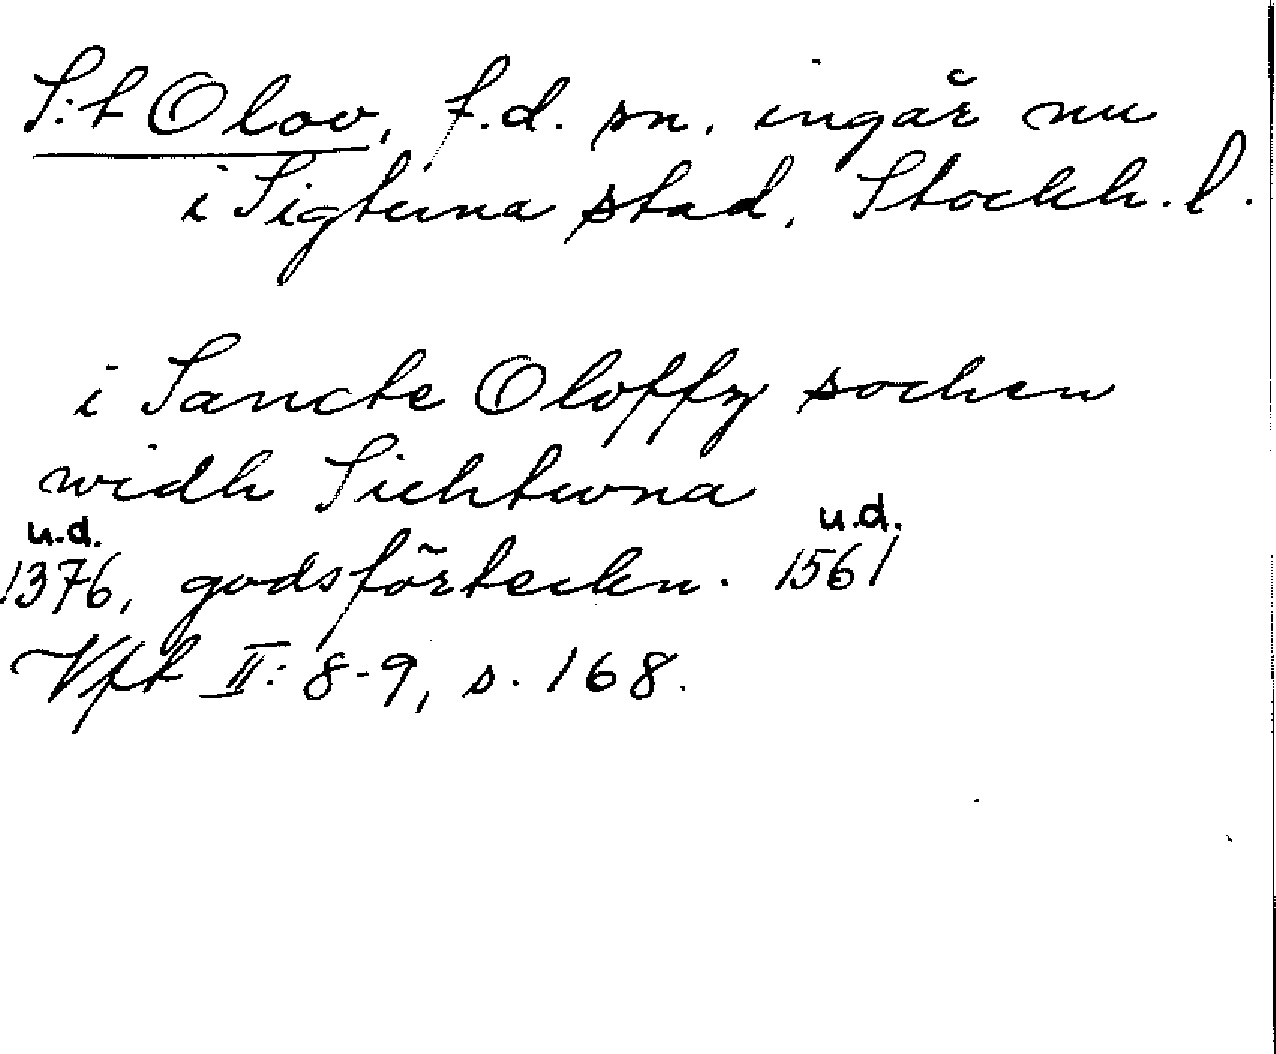 S:t Olov, f.d. sn. ingår nu
i Sigtuna stad, Stockh. l.
i Sancte Oloffz sochen
widh Sichtuna
u.d. u.d.
1376, godsförteckn. 1561
Vfk II: 8-9, s. 168.